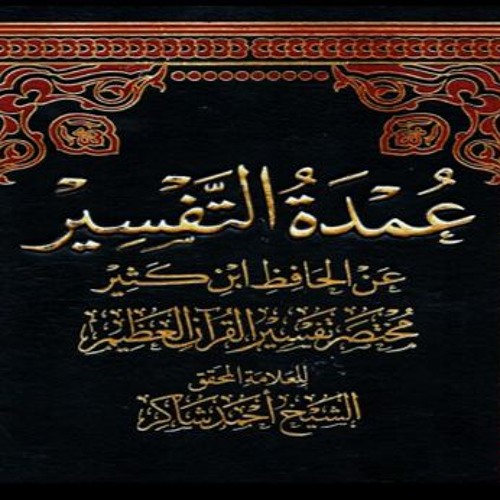 عُمْدَةُ التَّفْسِيْرِ
عَنِ الْحَافِظِ ابْنِ كَثِيْر
مُخْتَصَر تَفْسِيْر القُرْآن العَظِيْم
للعلامة المحقق
الشيخ أحمد شاكر